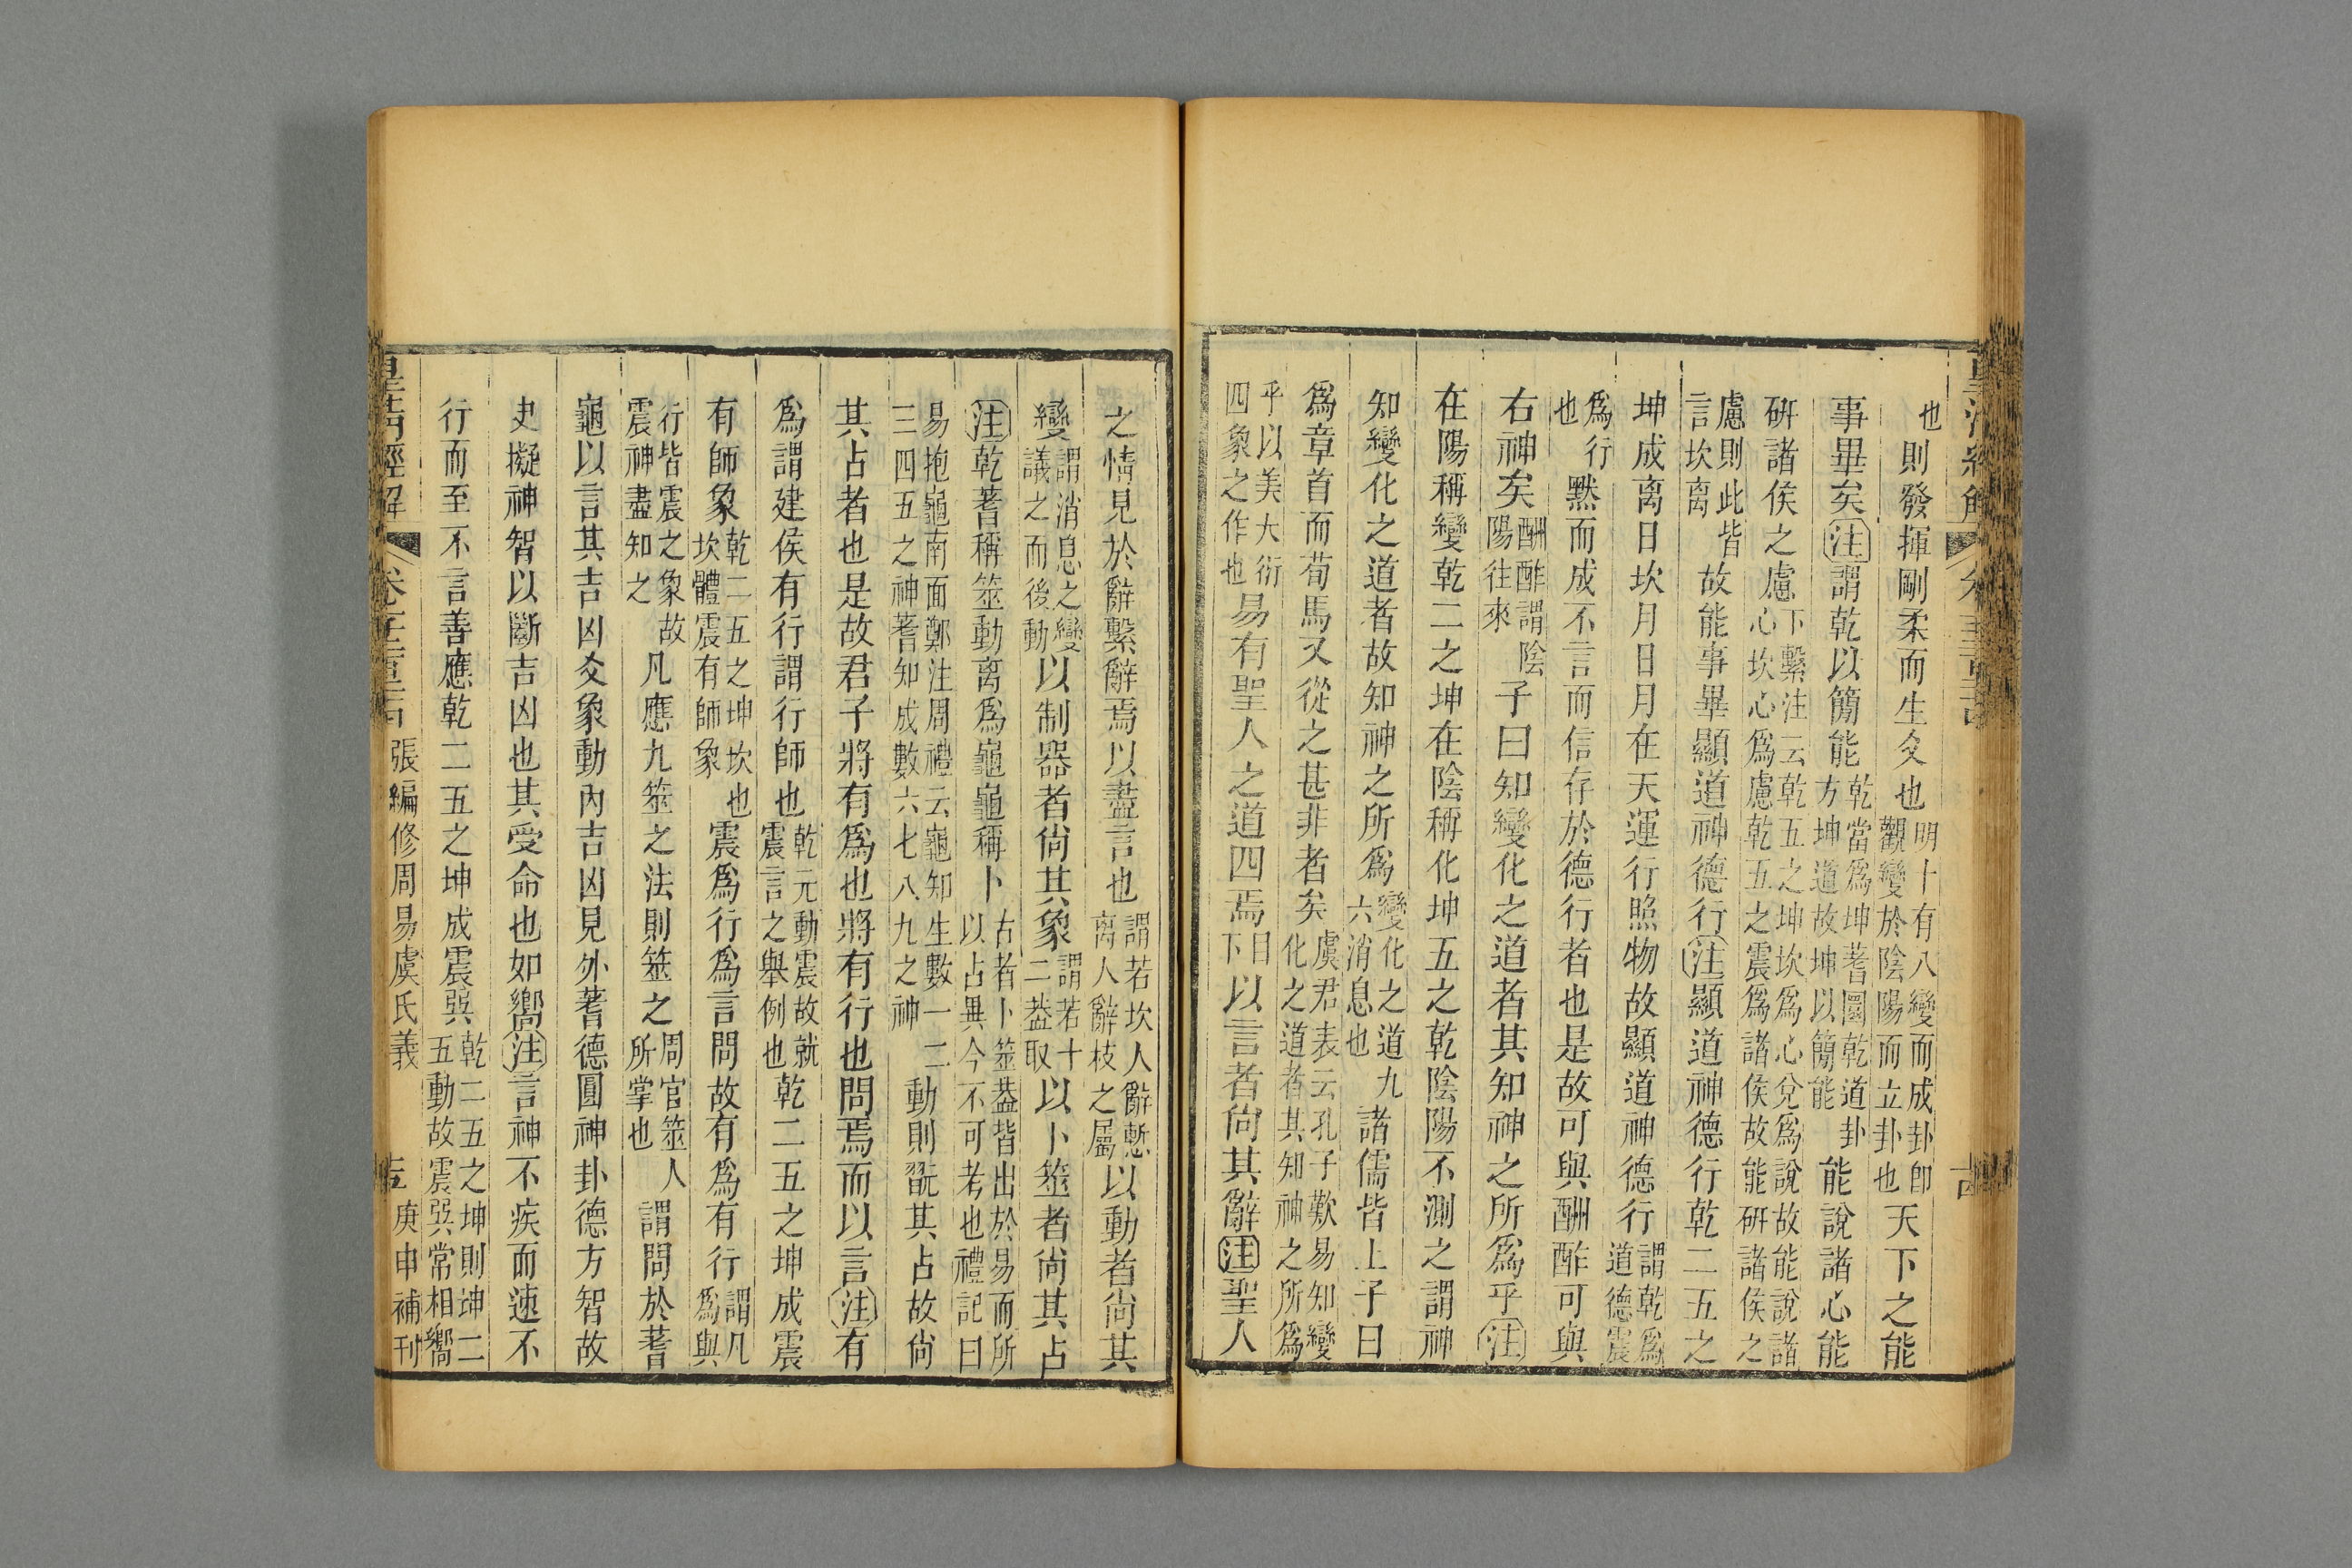 也則發揮剛柔而生爻也明十有八變而成卦卽觀變於陰陽而立卦也天下之能
事畢矣注謂乾以簡能乾當爲坤蓍圜乾道卦方坤道故坤以簡能能說諸心能
硏諸侯之慮下繫注云乾五之坤坎爲心兌爲說故能說諸心坎心爲慮乾五之震爲諸侯故能硏諸侯之
慮則此皆言坎离故能事畢顯道神德行注顯道神德行乾二五之
坤成离日坎月日月在天運行照物故顯道神德行謂乾爲道德震
爲行也默而成不言而信存於德行者也是故可與酬酢可與
右神矣酬酢謂陰陽往來子曰知變化之道者其知神之所爲乎注
在陽稱變乾二之坤在陰稱化坤五之乾陰陽不測之謂神
知變化之道者故知神之所爲變化之道九六消息也諸儒皆上子曰
爲章首而荀馬又從之甚非者矣虞君表云孔子歎易知變化之道者其知神之所爲
乎以美大衍四象之作也易有聖人之道四焉日下以言者尙其辭注聖人
之情見於辭繫辭焉以盡言也謂若坎人辭慙离人辭枝之屬以動者尙其
變謂消息之變議之而後動以制器者尙其象謂若十二葢取以卜筮者尙其占
注乾蓍稱筮動离爲龜龜稱卜古者卜筮葢皆出於易而所以占異今不可考也禮記曰
易抱龜南面鄭注周禮云龜知生數一二三四五之神蓍知成數六七八九之神動則翫其占故尙
其占者也是故君子將有爲也將有行也問焉而以言注有
爲謂建侯有行謂行師也乾元動震故就震言之舉例也乾二五之坤成震
有師象乾二五之坤坎也坎體震有師象震爲行爲言問故有爲有行謂凡爲與
行皆震之象故震神盡知之凡應九筮之法則筮之周官筮人所掌也謂問於蓍
龜以言其吉凶爻象動內吉凶見外蓍德圓神卦德方智故
史擬神智以斷吉凶也其受命也如嚮注言神不疾而速不
行而至不言善應乾二五之坤成震巽乾二五之坤則坤二五動故震巽常相嚮
皇清經解 張編修周易虞氏義 庚申補刊